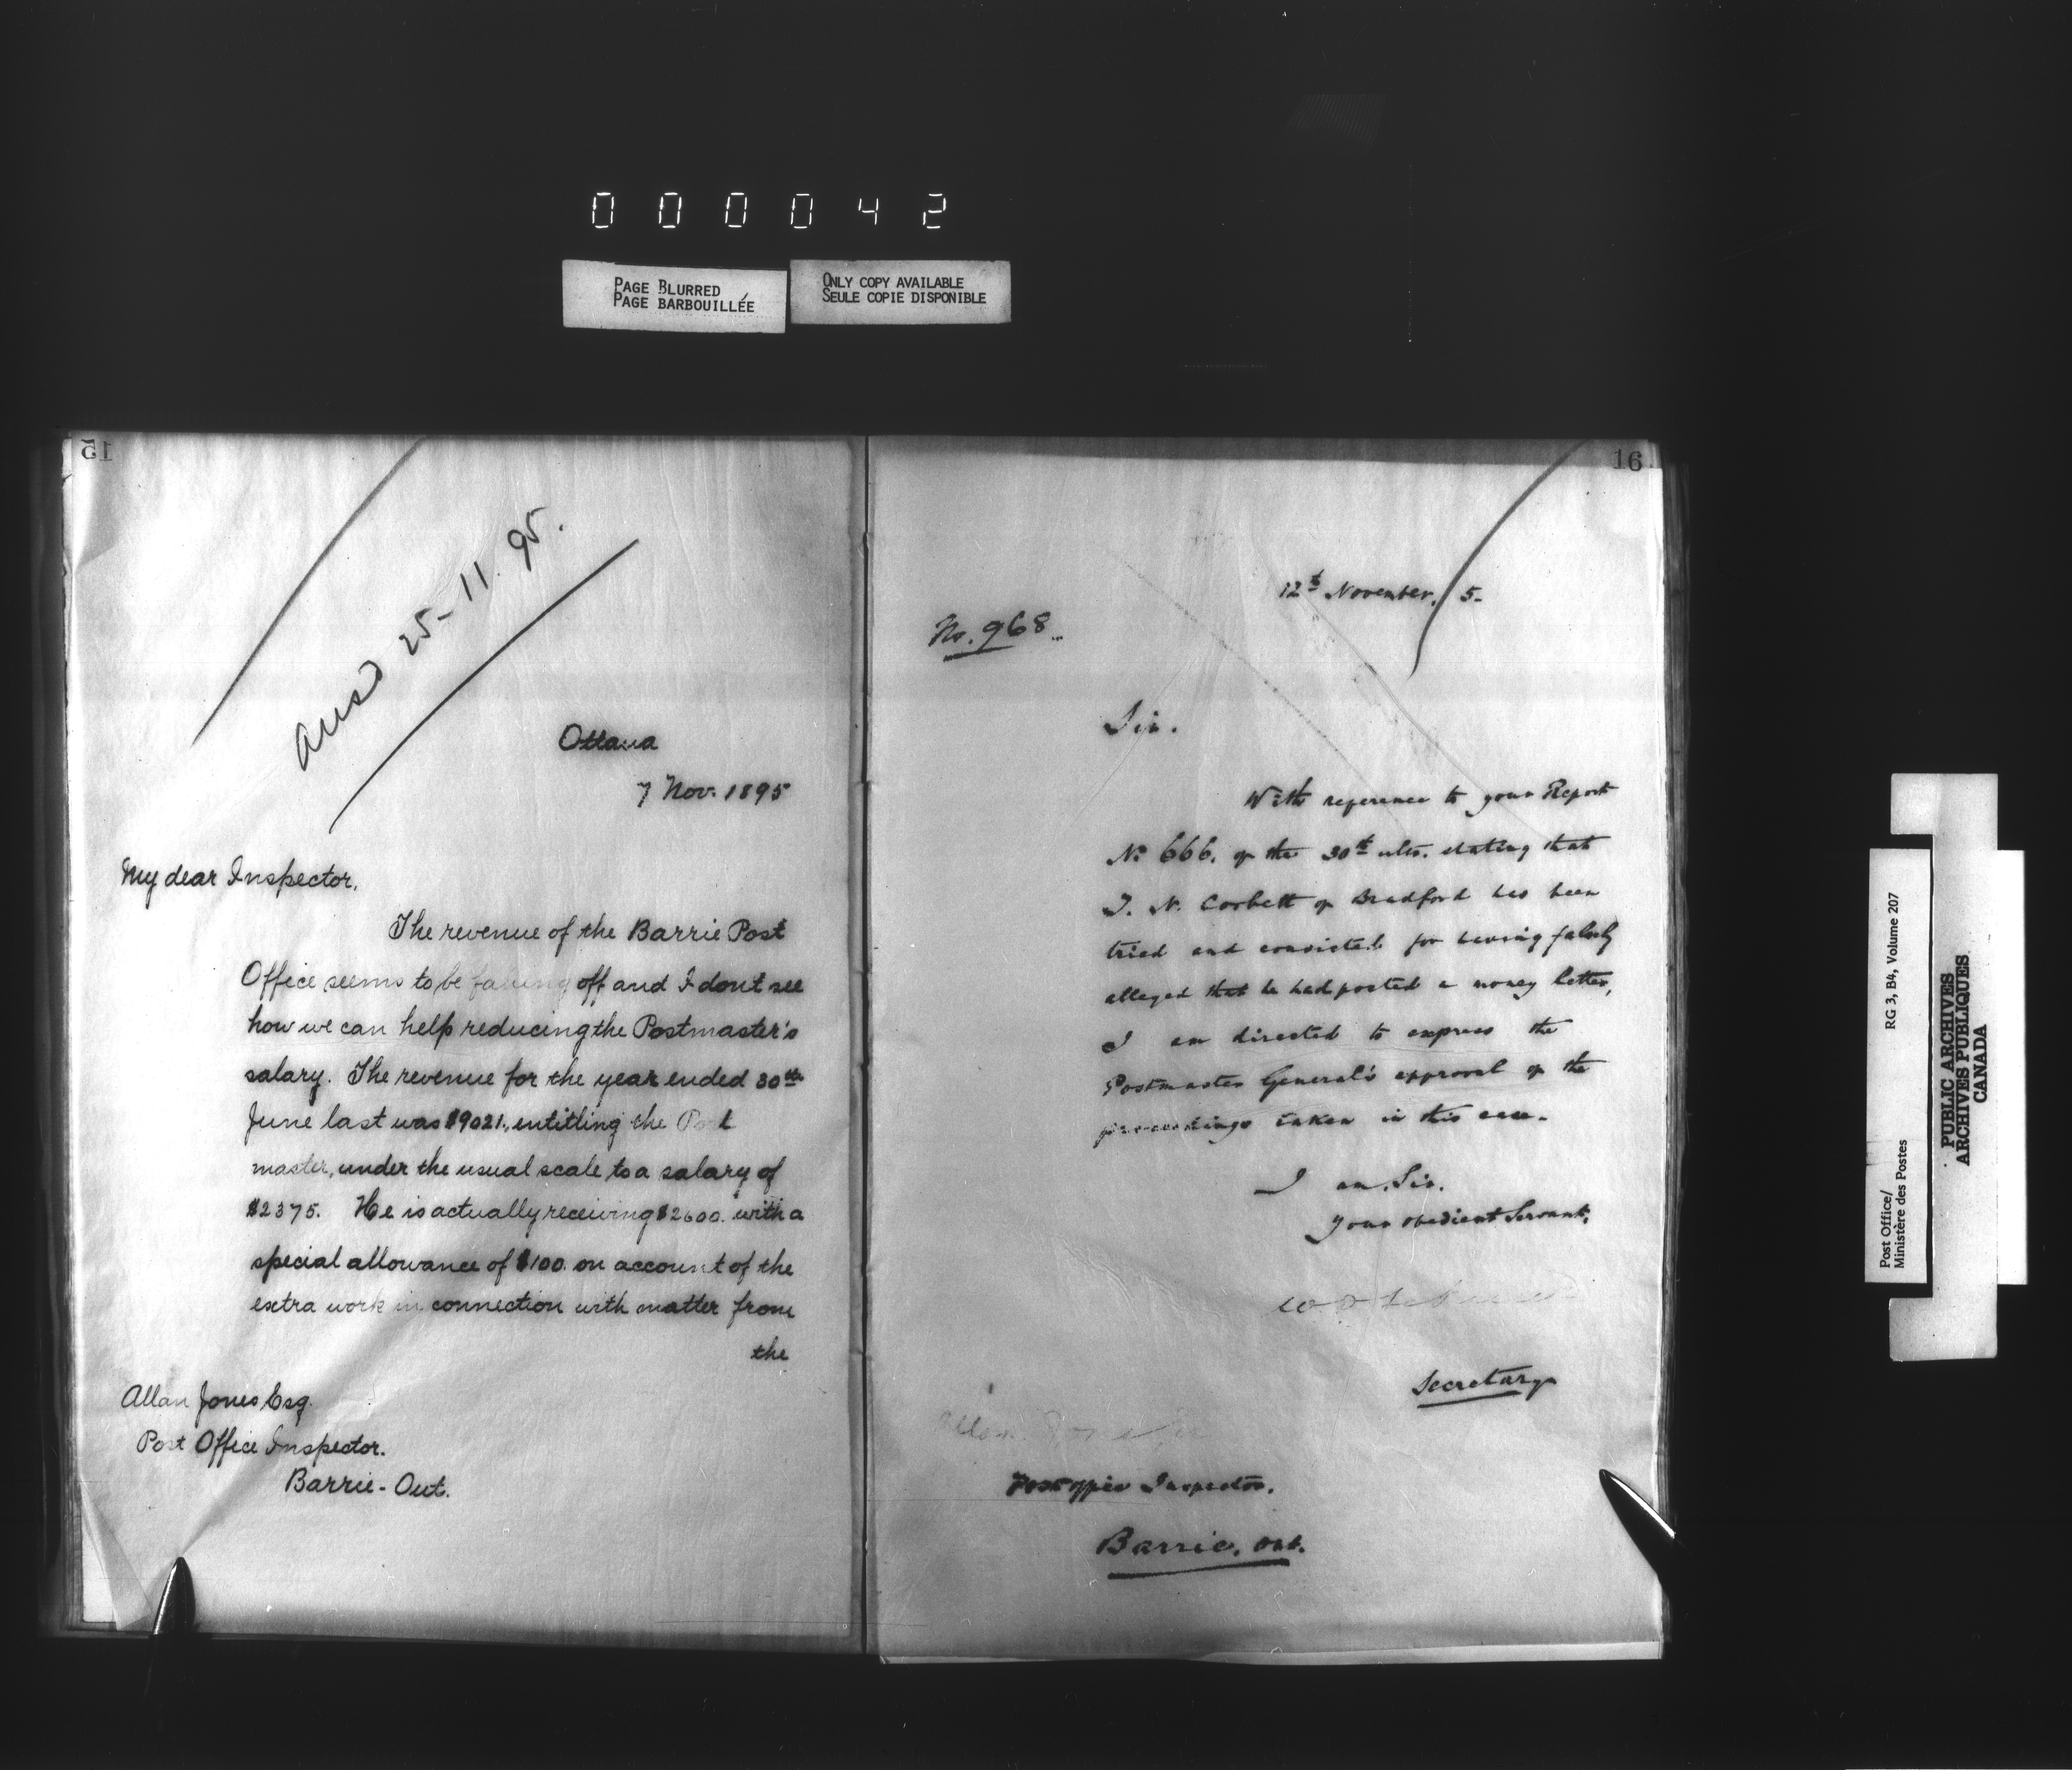 000042
PAGE BLURRED
PAGE BARBOUILLÉE
ONLY COPY AVAILABLE
SEULE COPIE DISPONIBLE
15
Ansd 25-11.95.
Ottawa
7 Nov. 1895
My dear Inspector,
The revenue of the Barrie Post
Office seems to be falling off and I dont see
how we can help reducing the Postmaster's
salary. The revenue for the year ended 30th
June last was $9021., entitling the Post
master, under the usual scale to a salary of
$2375. He is actually receiving $2600. with a
special allowance of $100. on account of the
extra work in connection with matter from
the
Allan Jones Esq.
Post Office Inspector.
Barrie - Ont.
16
12th November, 5-
No. 968
Sir.
With reference to your Report
No 666. of the 30th ulto. stating that
J. N. Corbett of Bradford has been
tried and convicted for having falsely
alleged that he had posted a money letter,
I am directed to express the
Postmaster General's approval of the
proceedings taken in this case.
I am, Sir,
Your obedient Servant,
Secretary
Allan Jones
Post Office Inspector,
Barrie, Ont.
Post Office/
Ministère des Postes
RG 3, B4, Volume 207
PUBLIC ARCHIVES
ARCHIVES PUBLIQUES
CANADA